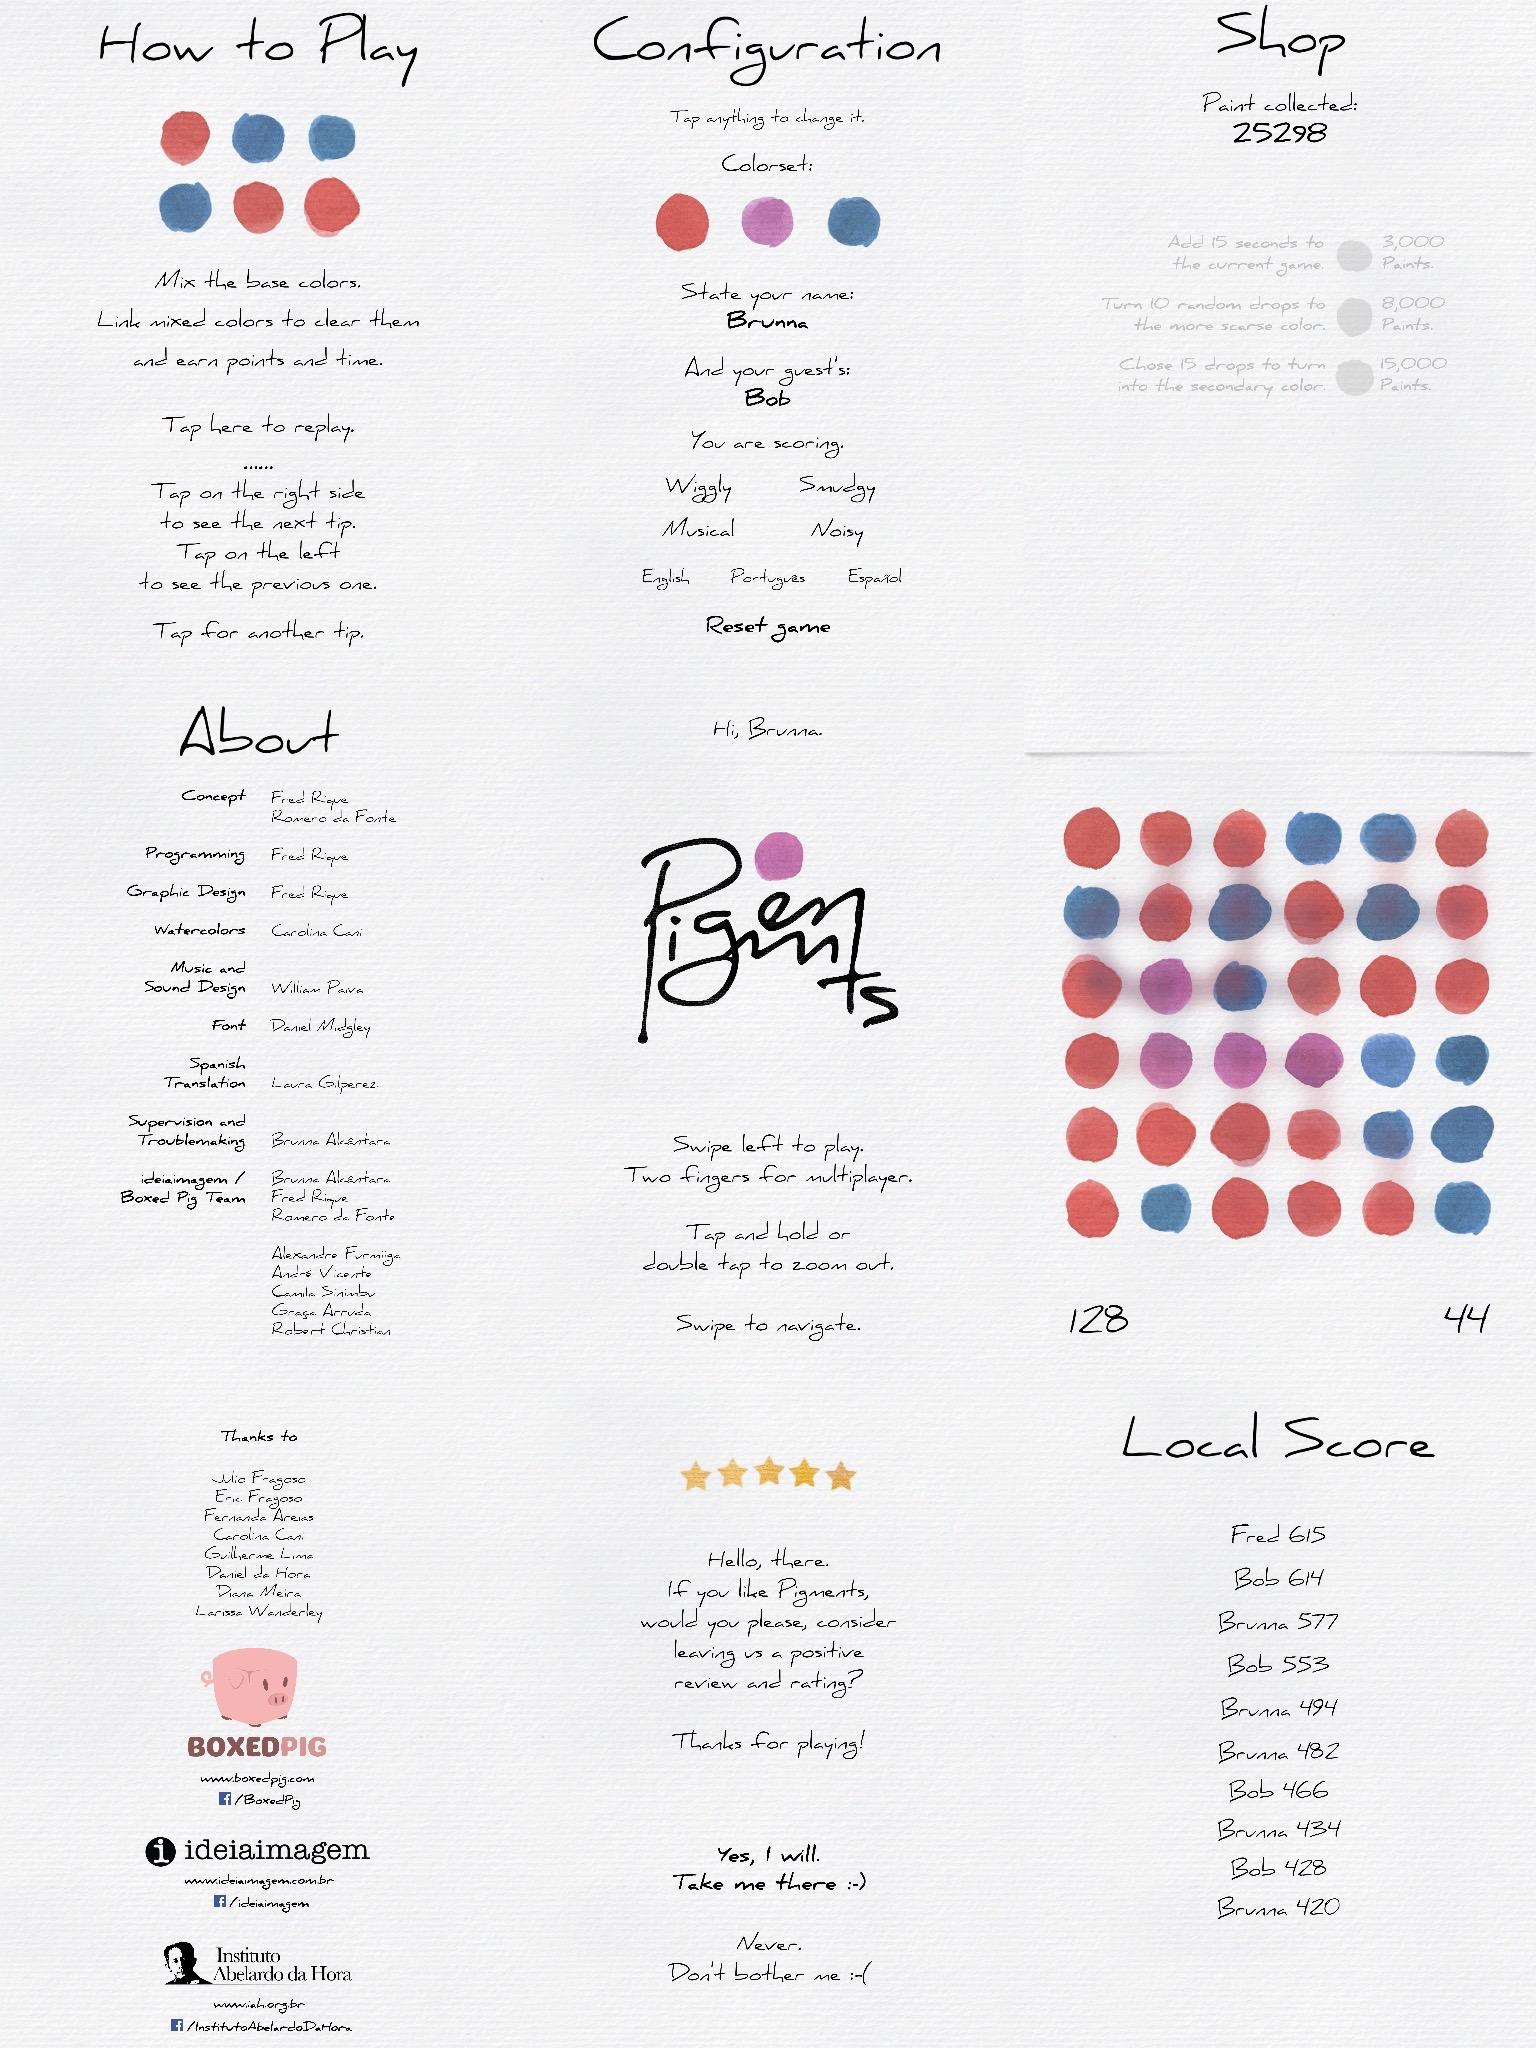 How to Play
Mix the base colors.
Link mixed colors to clear them
and earn points and time.
Tap here to replay.
......
Tap on the right side
to see the next tip.
Tap on the left
to see the previous one.
Tap for another tip.
Configuration
Tap anything to change it.
Colorset:
State your name:
Brunna
And your guest's:
Bob
You are scoring.
Wiggly Smudgy
Musical Noisy
English Português Español
Reset game
Shop
Paint collected:
25298
Add 15 seconds to
the current game.
3,000
Paints.
Turn 10 random drops to
the more scarse color.
8,000
Paints.
Chose 15 drops to turn
into the secondary color.
15,000
Paints.
About
Concept Fred Rique
Romero da Fonte
Programming Fred Rique
Graphic Design Fred Rique
Watercolors Carolina Cani
Music and
Sound Design William Paiva
Font Daniel Midgley
Spanish
Translation Laura Gilperez
Supervision and
Troublemaking Brunna Alcântara
ideiaimagem / Brunna Alcântara
Boxed Pig Team Fred Rique
Romero da Fonte
Alexandre Furmiga
André Vicente
Camila Sinimbu
Graça Arruda
Robert Christian
Hi, Brunna.
Pigments
Swipe left to play.
Two fingers for multiplayer.
Tap and hold or
double tap to zoom out.
Swipe to navigate.
128 44
Thanks to
Julio Fragoso
Eric Fragoso
Fernanda Areias
Carolina Cani
Guilherme Lima
Daniel da Hora
Diana Meira
Larissa Wanderley
BOXEDPIG
www.boxedpig.com
f /BoxedPig
i ideiaimagem
www.ideiaimagem.com.br
f /ideiaimagem
Instituto
Abelardo da Hora
www.iah.org.br
f /InstitutoAbelardoDaHora
Hello, there.
If you like Pigments,
would you please, consider
leaving us a positive
review and rating?
Thanks for playing!
Yes, I will.
Take me there :-)
Never.
Don't bother me :-(
Local Score
Fred 615
Bob 614
Brunna 577
Bob 553
Brunna 494
Brunna 482
Bob 466
Brunna 434
Bob 428
Brunna 420